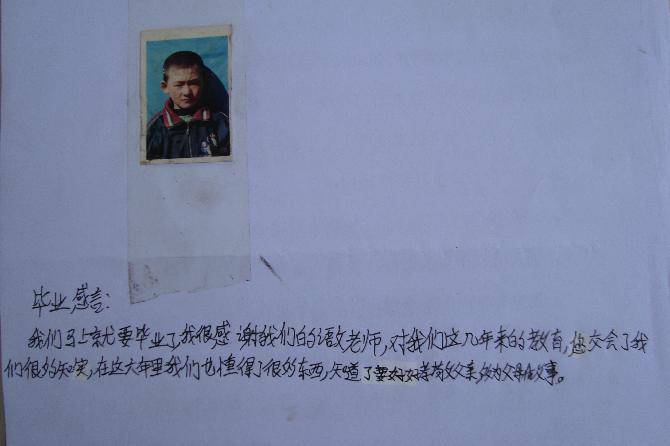 毕业感言:
我们马上就要毕业了,我很感谢我们的语文老师,对我们这几年来的教育,您交会了我
们很多知实,在这六年里我们也懂得了很多东西,知道了要好好孝敬父亲,为父母做事。